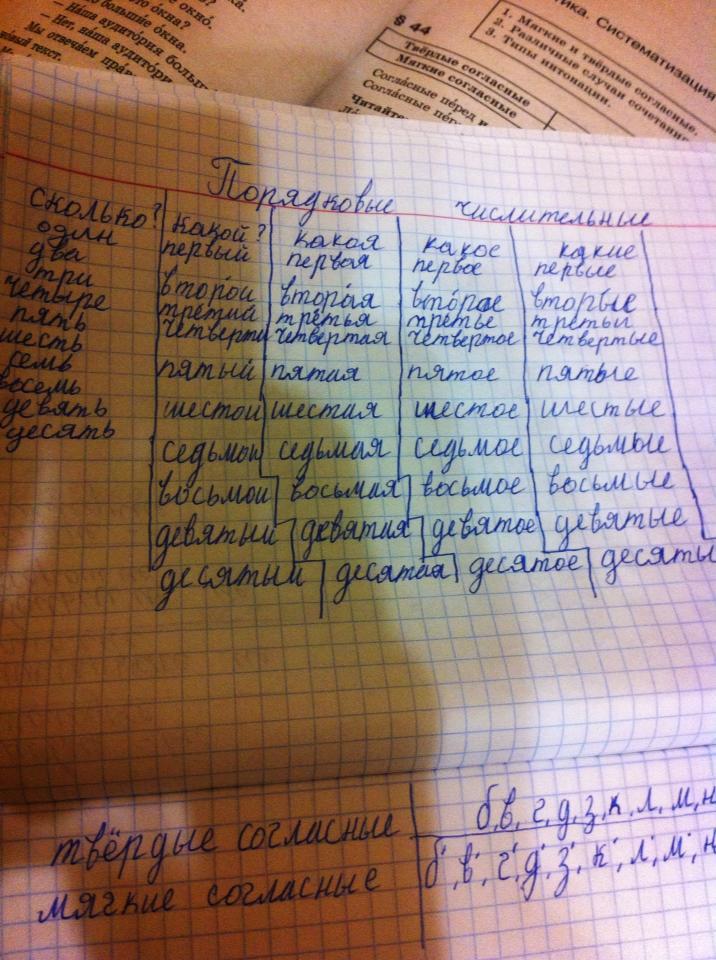 окно.
окна?
больши́е о́кна.
— На́ша аудито́рия больш
— Нет, на́ша аудито́ри
Мы отвеча́ем пра́в
текст.
ика. Систематизация
§ 44
1. Мягкие и твёрдые согласные.
2. Различные случаи сочетани
3. Типы интонации.
Твёрдые согласные
Мягкие согласные
Согла́сные пе́ред и
Согла́сные пе́
Читайте
Порядковые числительные
сколько? какой? какая какое какие
один первый первая первое первые
два второй втора́я второ́е вторы́е
три третий тре́тья третье третьи
четыре четверты четвертая четвертое четвертые
пять пятый пятая пятое пятые
шесть шестой шестая шестое шестые
семь седьмой седьмая седьмое седьмые
восемь восьмой восьмая восьмое восьмые
девять девятый девятая девятое девятые
десять десятый десятая десятое десяты
твёрдые согласные б, в, г, д, з, к, л, м, н
мягкие согласные б', в', г', д', з', к', л', м', н